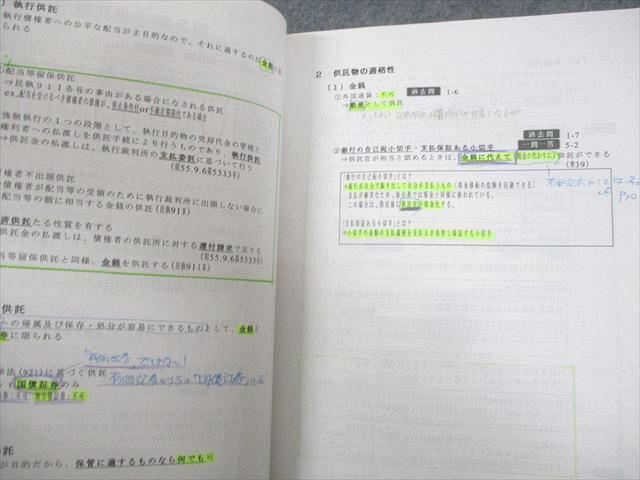 ）執行供託
執行債権者への公平な配当が主目的なので、それに適するのは金銭に
られる
配当等留保供託
⇒民執９１各号の事由がある場合になされる供託
ex.配当を受けるべき債権者の債権が、停止条件付or不確定期限付である場合
強制執行の１つの段階として、執行目的物の売却代金の管理と
権利者への払渡しを供託手続により行うものであり、執行供託
⇒供託金の払渡しは、執行裁判所の支払委託に基づいて行う
（昭55.9.6第5333号）
権者不出頭供託
配当等の受領のために執行裁判所に出頭しない場合に
配当等の額に相当する金銭の供託（民執91Ⅱ）
済供託たる性質を有する
供託金の払渡しは、債権者の供託所に対する還付請求で足りる
（昭55.9.6第5333号）
当等留保供託と同様、金銭を供託する（民執91Ⅱ）
供託
への帰属及び保存・処分が容易にできるものとして、金銭と
券に限られる
法（921）に基づく供託
国債証券のみ
券：不可 地方債証券：不可
託
が目的だから、保管に適するものなら何でも可
２ 供託物の適格性
（１）金銭
①外国通貨：不可 過去問 1-6
⇒動産として供託
過去問 1-7
一問一答 5-2
②銀行の自己宛小切手・支払保証ある小切手
⇒供託官が相当と認めるときは、金銭に代えて（現金の代わりに）供託ができる
（準39）
「銀行の自己宛小切手」とは？
⇒銀行が自分で振り出して自分が支払うもの（現金移転の危険を回避できる）
支払が確実なため、取引界では現金と同様に扱われている。
この場合は、供託後は供託官が現金化する。
「支払保証ある小切手」とは？
⇒小切手の金額の支払義務を支払人が負担し保証する小切手